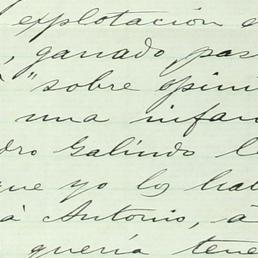 explotación e
, ganado pas
" sobre opini
una infan
dro Galindo l
que yo los hab
à Antonio, à
quería tene